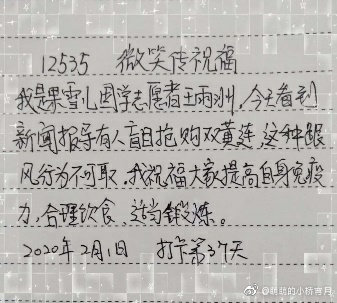 12535 微笑传祝福
我是果雪儿困学志愿者王雨洲,今天看到
新闻报导有人盲目抢购双黄连,这种跟
风行为不可取.我祝福大家提高自身免疫
力,合理饮食 适当锻炼。
2020年2月1日 打卡第37天
@萌萌的小桥官月